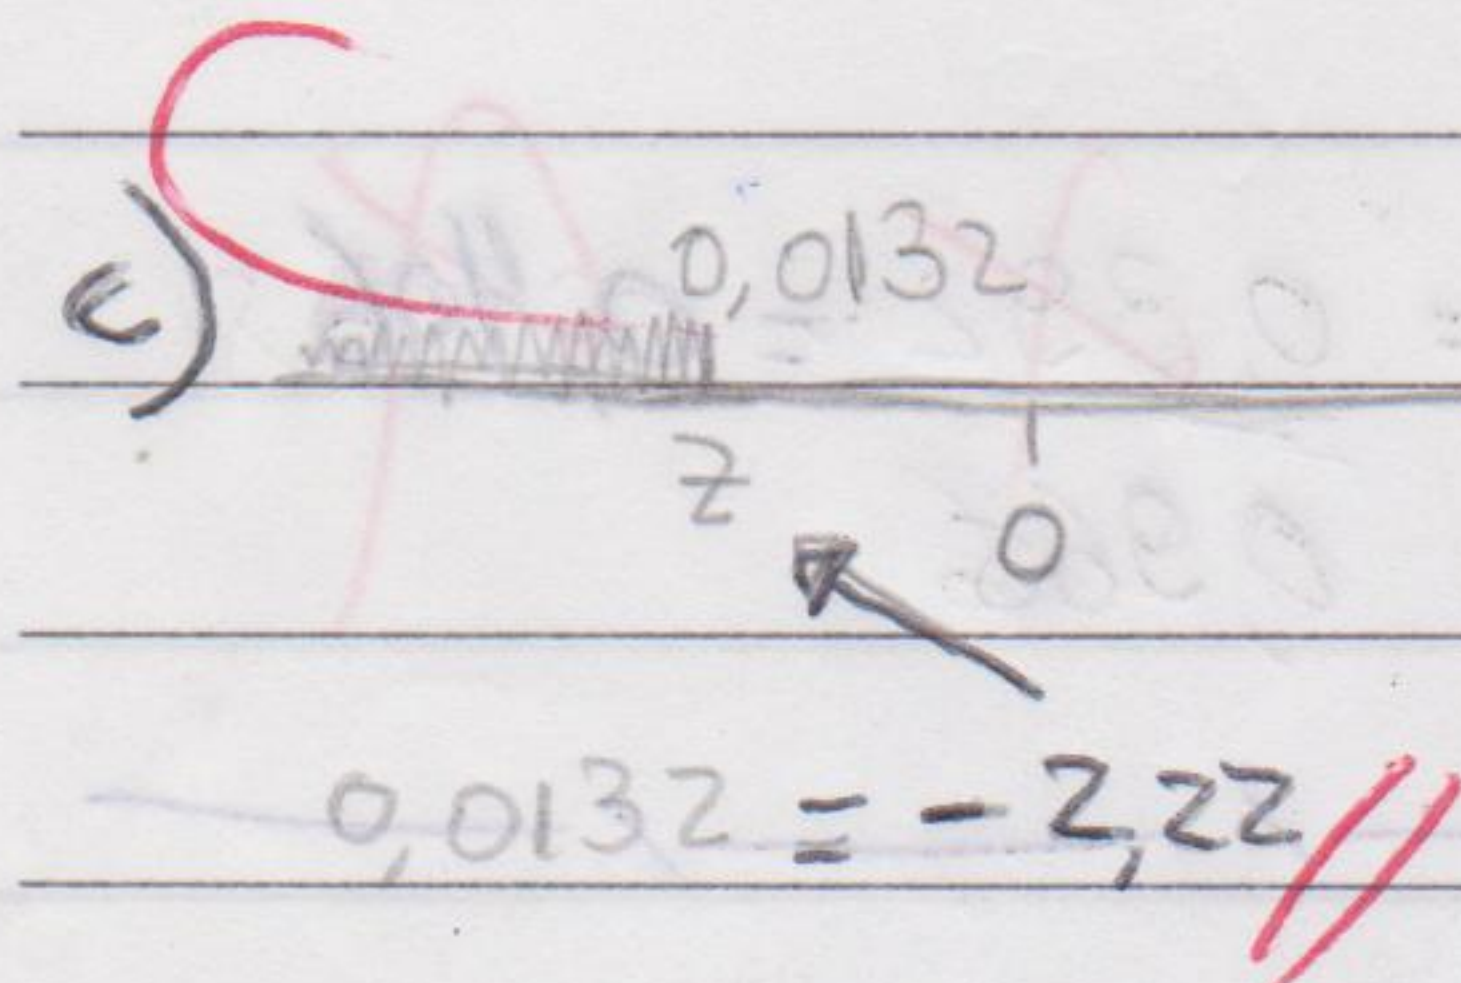 c)
0,0132
z
0
0,0132 = - 2,22